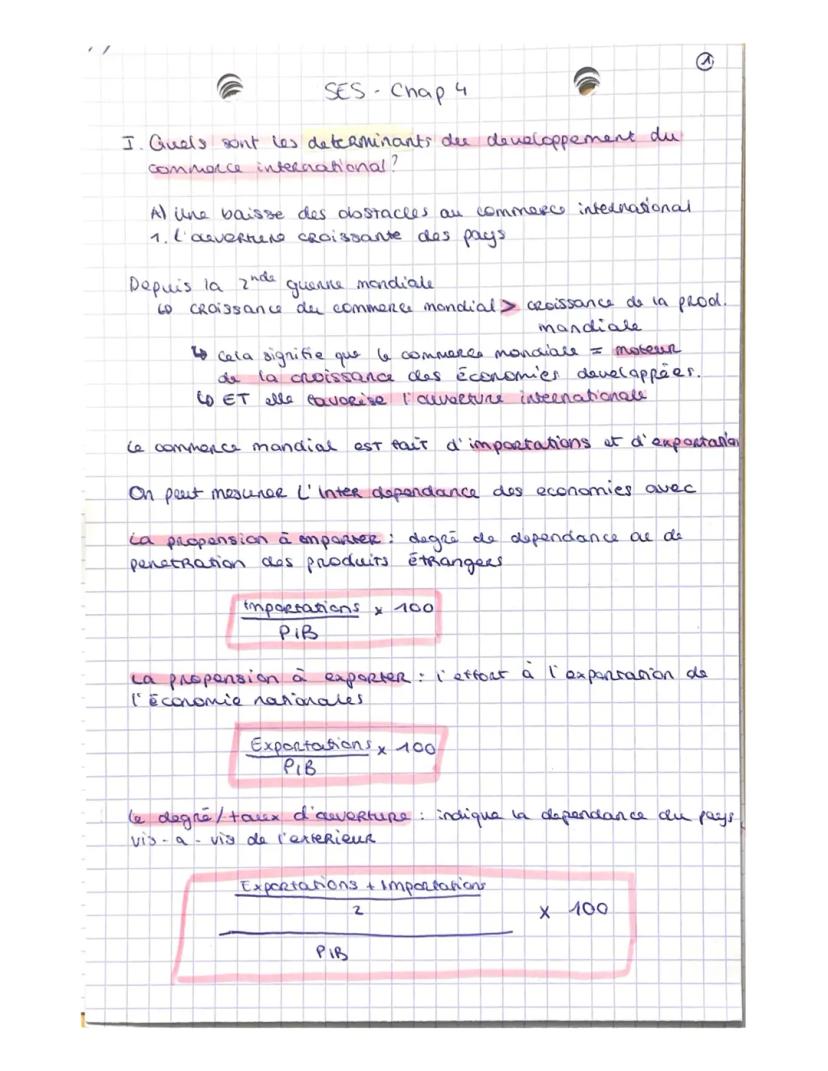 ①
SES - Chap 4
I. Quels sont les determinants du developpement du
commerce international ?
A) Une baisse des obstacles au commerce international
1. L'ouverture croissante des pays
Depuis la 2nde guerre mondiale
↳ croissance du commerce mondial > croissance de la prod.
mondiale
↳ cela signifie que le commerce mondiale = moteur
de la croissance des économies developpées.
↳ ET elle favorise l'ouverture internationale
Le commerce mondial est fait d'importations et d'exportation
On peut mesurer l'inter dependance des economies avec
La propension à emporter : degré de dependance ou de
penetration des produits étrangers
Importations x 100
PIB
La propension à exporter : l'effort à l'exportation de
l'économie nationales
Exportations x 100
PIB
Le degré/taux d'ouverture : indique la dependance du pays
vis-a-vis de l'exterieur
Exportations + Importations
2
x 100
PIB